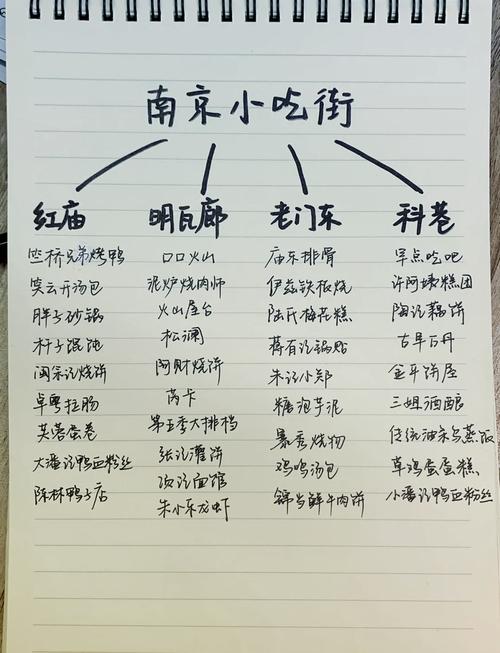 南京小吃街
红庙 明瓦廊 老门东 科巷
竺桥兄弟烤鸭 口口火山 庙东排骨 早点吃吧
笑云开汤包 泥炉烧肉师 伊兹铁板烧 许阿姨糕团
胖子砂锅 火山屋台 陆氏梅花糕 陶记藕饼
村子馄饨 松澜 蒋有记锅贴 古早百丹
闽宗记烧饼 阿财烧饼 朱记小郑 金斗饼屋
卓粤拉肠 芮卡 糖泡芋泥 三姐酒酿
芙蓉蛋卷 第五季大排档 暴秀烧物 传统油氽乌蒸饭
大潘记鸭血粉丝 张记灌饼 鸡鸣汤包 草鸡蛋蛋糕
陈林鸭子店 项记面馆 锦昌鲜牛肉饼 小潘记鸭血粉丝
朱小乐龙虾